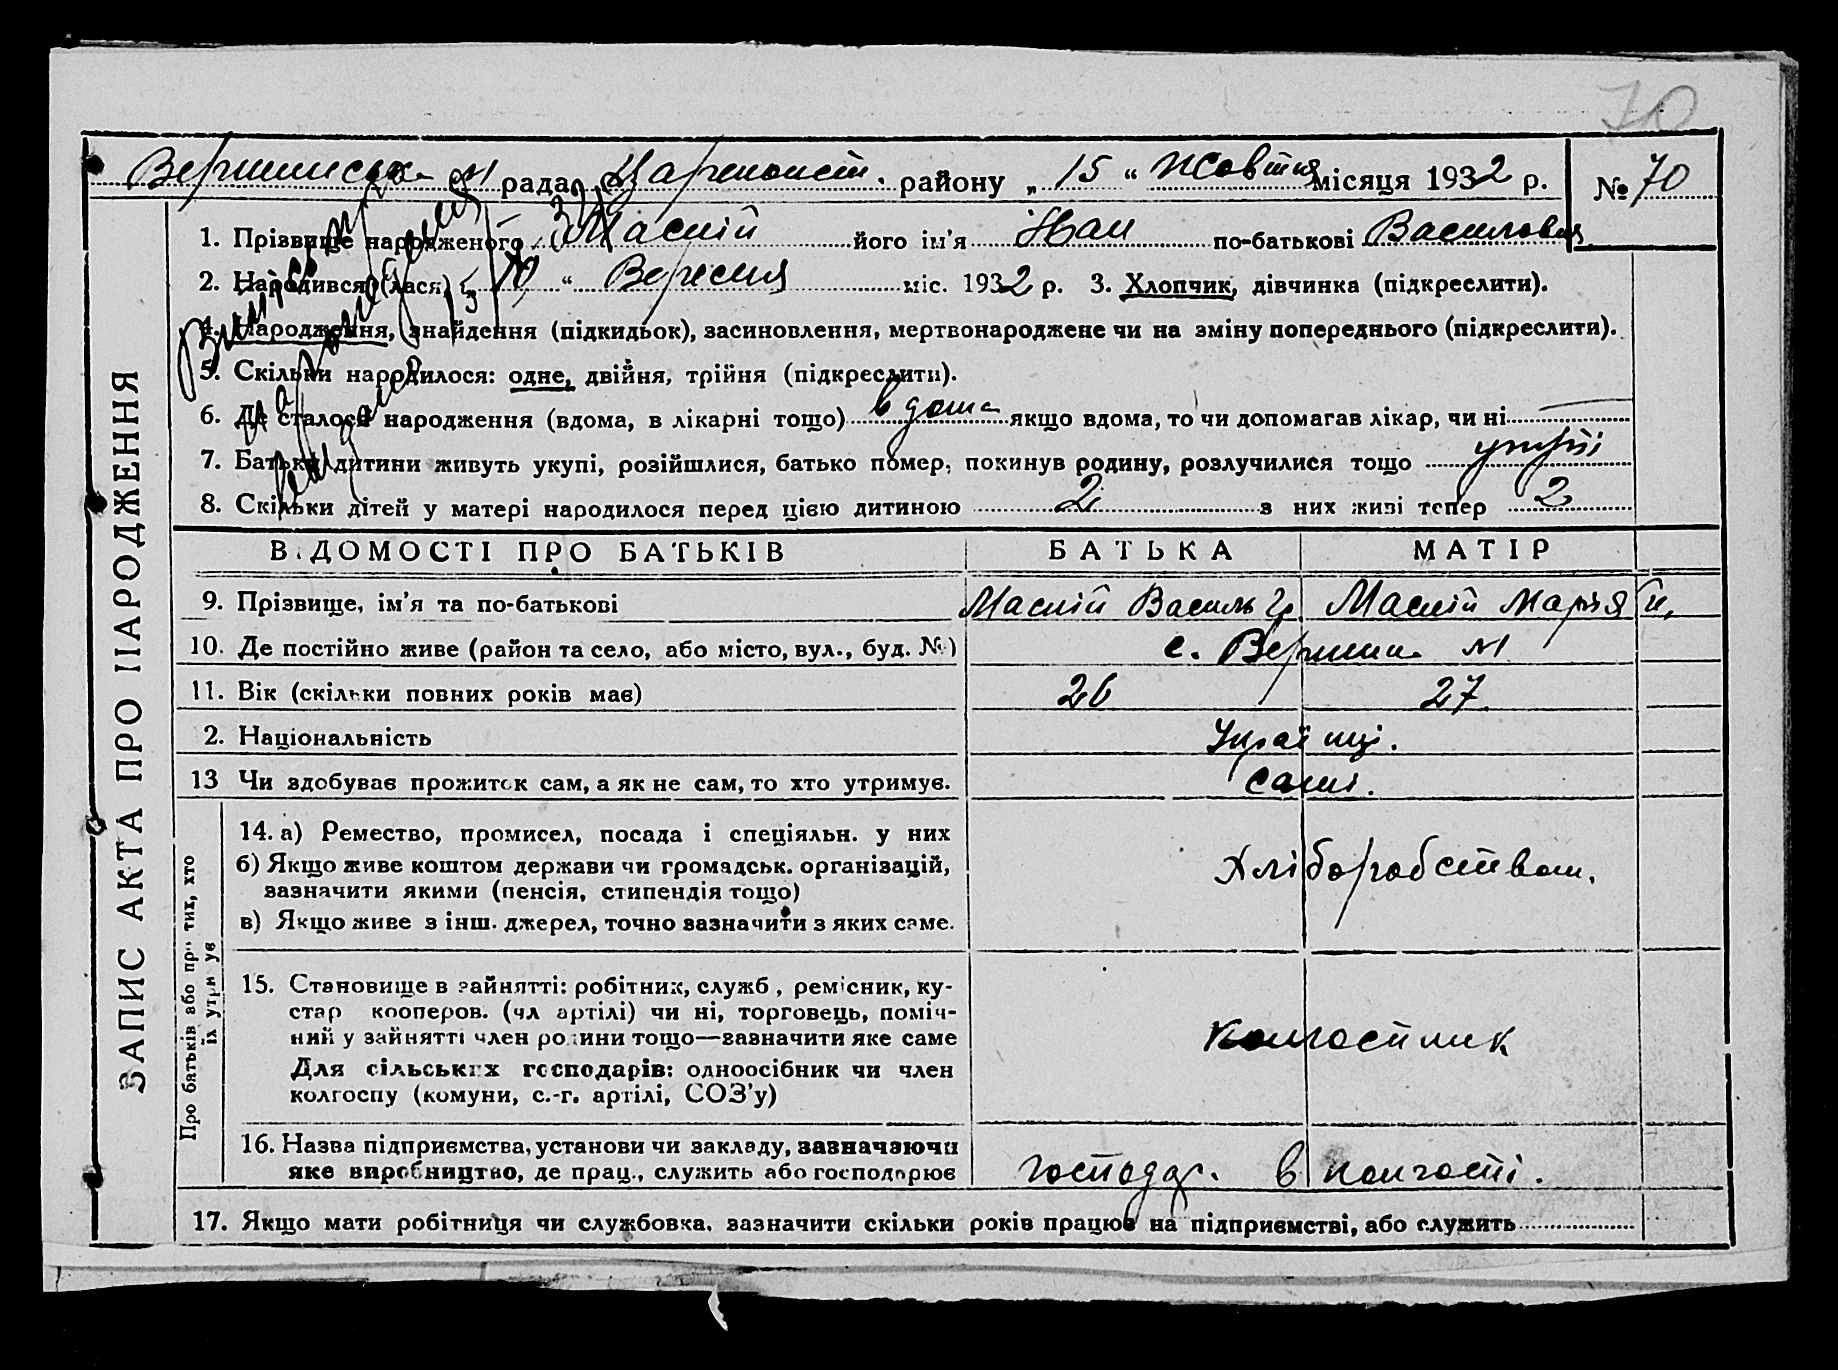 70
рада Царичанськ. району „ 15 “ Жовтня місяця 1932 р. № 70
1. Прізвище народженого його ім'я Іван по-батькові Васильович
2. Народився (лася) „ 10 “ Вересня міс. 1932 р. 3. Хлопчик, дівчинка (підкреслити).
4. Народження, знайдення (підкидьок), засиновлення, мертвонароджене чи на зміну попереднього (підкреслити).
5. Скільки народилося: одне, двійня, трійня (підкреслити).
6. Де сталося народження (вдома, в лікарні тощо) вдома якщо вдома, то чи допомагав лікар, чи ні —
7. Батьки дитини живуть укупі, розійшлися, батько помер, покинув родину, розлучилися тощо укупі
8. Скільки дітей у матері народилося перед цією дитиною 2 з них живі тепер 2
ВІДОМОСТІ ПРО БАТЬКІВ БАТЬКА МАТІР
9. Прізвище, ім'я та по-батькові Василь Гр. Марія
10. Де постійно живе (район та село, або місто, вул., буд. №) с.
11. Вік (скільки повних років має) 26 27
2. Національність Українці.
13 Чи здобуває прожиток сам, а як не сам, то хто утримує. сами.
14. а) Ремество, промисел, посада і спеціяльн. у них
б) Якщо живе коштом держави чи громадськ. організацій,
зазначити якими (пенсія, стипендія тощо) Хліборобством.
в) Якщо живе з інш. джерел, точно зазначити з яких саме.
15. Становище в зайнятті: робітник, служб., ремісник, ку-
стар кооперов. (чл артілі) чи ні, торговець, поміч-
ний у зайнятті член родини тощо—зазначити яке саме колгоспник
Для сільських господарів: одноосібник чи член
колгоспу (комуни, с.-г. артілі, СОЗ'у)
16. Назва підприємства, установи чи закладу, зазначаючи
яке виробництво, де прац., служить або господарює господар. в колгоспі.
17. Якщо мати робітниця чи службовка, зазначити скільки років працює на підприємстві, або служить
ЗАПИС АКТА ПРО НАРОДЖЕННЯ
Про батьків або про тих, хто
їх утримує